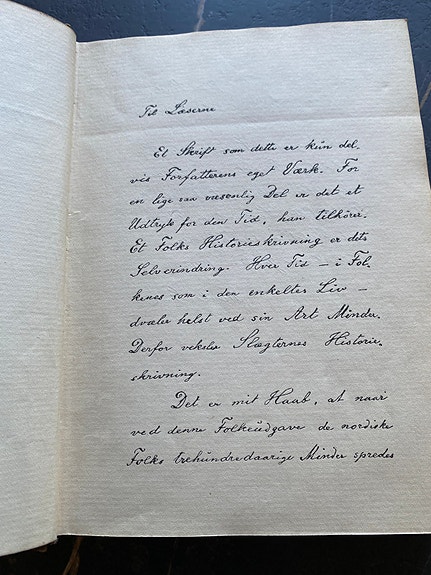 Til Læserne
Et Skrift som dette er kun del-
vis Forfatterens eget Værk. For
en lige saa væsenlig Del er det et
Udtryk for den Tid, han tilhører.
Et Folks Historieskrivning er dets
Selverindring. Hver Tid — i Fol-
kenes som i den enkeltes Liv —
dvæler helst ved sin Art Minder.
Derfor veksler Slægternes Historie-
skrivning.
Det er mit Haab, at naar
ved denne Folkeudgave de nordiske
Folks trehundredaarige Minder spredes